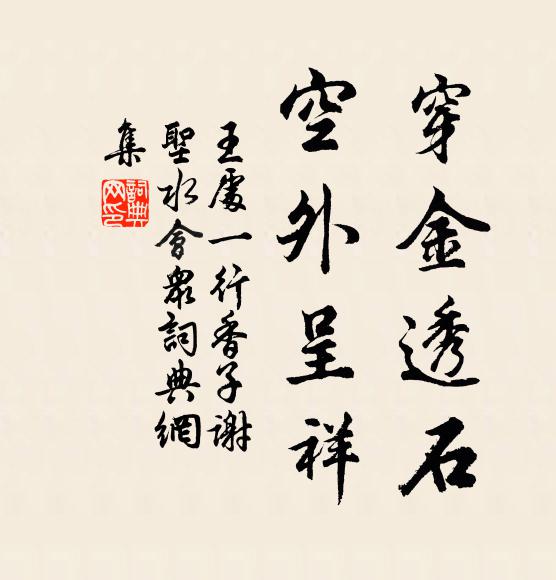 穿金透石
空外呈祥
王處一行香子謝
聖水會衆詞典網
集
詞典
网印